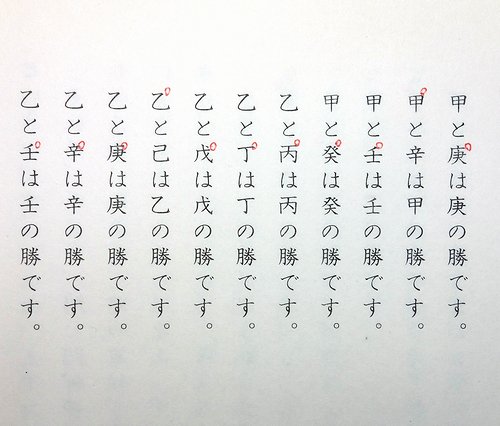 甲と庚は庚の勝です。
甲と辛は甲の勝です。
甲と壬は壬の勝です。
甲と癸は癸の勝です。
乙と丙は丙の勝です。
乙と丁は丁の勝です。
乙と戊は戊の勝です。
乙と己は乙の勝です。
乙と庚は庚の勝です。
乙と辛は辛の勝です。
乙と壬は壬の勝です。